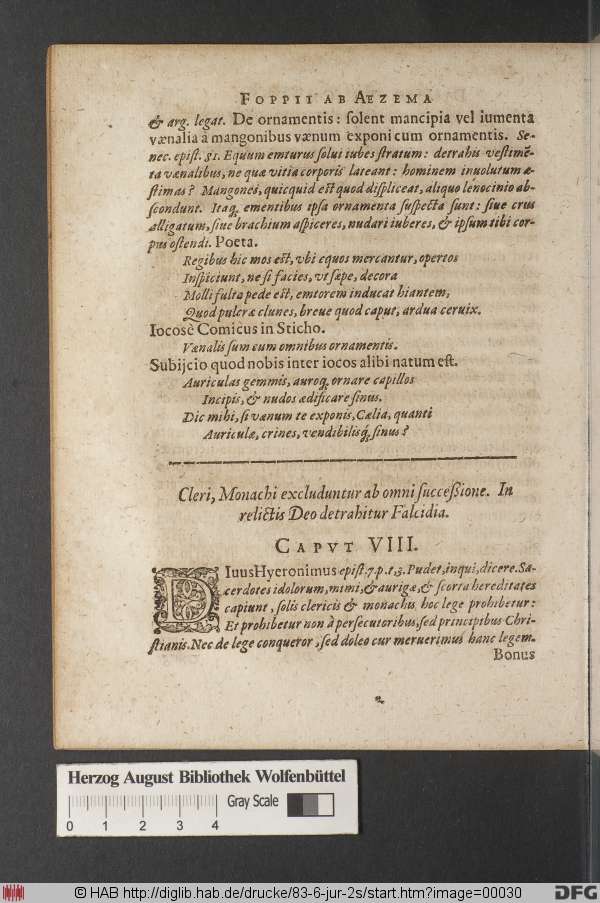 FOPPII AB AEZEMA
& arg. legat. De ornamentis: solent mancipia vel iumenta
vænalia à mangonibus vænum exponi cum ornamentis. Se-
nec. epist. 81. Equum emturus solui iubes stratum: detrahis vestimē-
ta vænalibus, ne quæ vitia corporis lateant: hominem inuolutum æ-
stimas? Mangones, quicquid est quod displiceat, aliquo lenocinio ab-
scondunt. Itaq; ementibus ipsa ornamenta suspecta sunt: siue crus
alligatum, siue brachium aspiceres, nudari iuberes, & ipsum tibi cor-
pus ostendi. Poeta.
Regibus hic mos est, vbi equos mercantur, opertos
Inspiciunt, ne si facies, vt sæpe, decora
Molli fulta pede est, emtorem inducat hiantem,
Quod pulcræ clunes, breue quod caput, ardua ceruix.
Iocosè Comicus in Sticho.
Vænalis sum cum omnibus ornamentis.
Subijcio quod nobis inter iocos alibi natum est.
Auriculas gemmis, auroq; ornare capillos
Incipis, & nudos ædificare sinus.
Dic mihi, si vænum te exponis, Cælia, quanti
Auriculæ, crines, vendibilisq; sinus?
Cleri, Monachi excluduntur ab omni successione. In
relictis Deo detrahitur Falcidia.
CAPVT VIII.
DIuus Hyeronimus epist. 7. p. t. 3. Pudet, inqui, dicere. Sa-
cerdotes idolorum, mimi, & aurigæ, & scorta hereditates
capiunt, solis clericis & monachis hoc lege prohibetur:
Et prohibetur non à persecutoribus, sed principibus Chri-
stianis. Nec de lege conqueror, sed doleo cur meruerimus hanc legem.
Bonus
Herzog August Bibliothek Wolfenbüttel
Gray Scale
0 1 2 3 4
© HAB http://diglib.hab.de/drucke/83-6-jur-2s/start.htm?image=00030
DFG